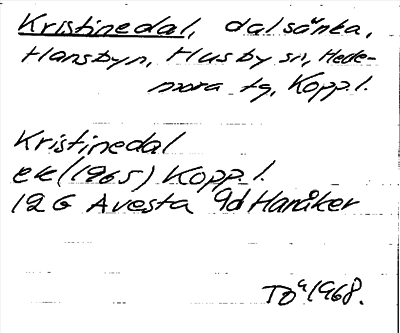 Kristinedal, dalsänka,
Hansbyn, Husby sn, Hede-
mora tg, Kopp. l.
Kristinedal
ek (1965) Kopp. l.
12G Avesta 9d Hanåker
1968.